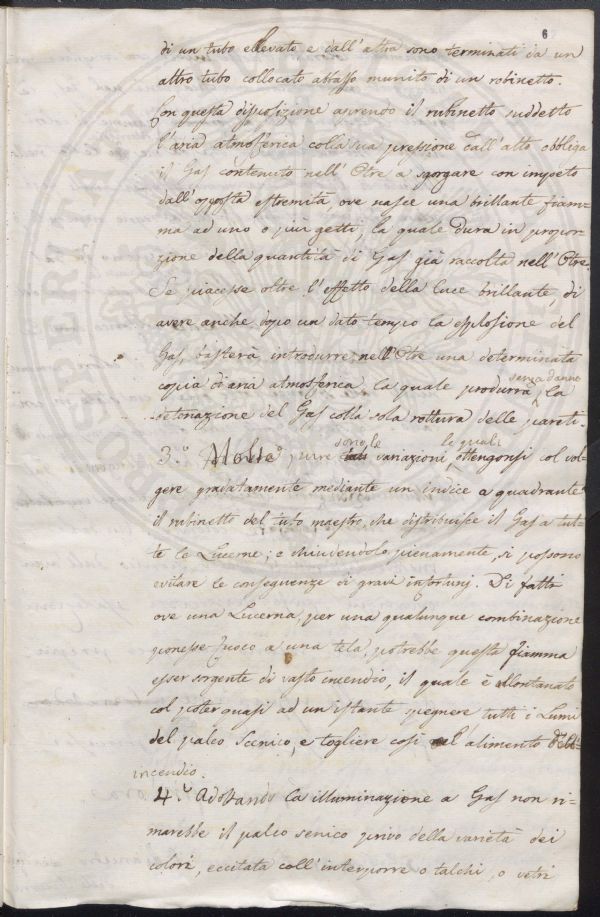 6
di un tubo ellevato e dall'altra sono terminati da un
altro tubo collocato abasso munito di un robinetto.
Con questa disposizione aprendo il rubinetto suddetto
l'aria atmosferica colla sua pressione dall'alto obbliga
il Gas contenuto nell'Otre a sgorgare con impeto
dall'opposta estremità, ove nasce una brillante fiam=
ma ad uno o più getti, la quale dura in propor=
zione della quantità di Gas già raccolta nell'Otre.
Se piacesse oltre l'effetto della luce brillante, di
avere anche dopo un dato tempo la esplosione del
Gas, basterà introdurre nell'Otre una determinata
copia di aria atmosferica, la quale produrrà senza danno la
detonazione del Gas colla sola rottura delle pareti.
3.° Molte pure sono le variazioni le quali ottengonsi col vol=
gere gradatamente mediante un indice a quadrante
il rubinetto del tubo maestro, che distribuisce il Gas a tut=
te le Lucerne; e chiudendolo pienamente, si possono
evitare le conseguenze di gravi infortunj. Di fatti
ove una Lucerna per una qualunque combinazione
ponesse fuoco a una tela, potrebbe questa fiamma
esser sorgente di vasto incendio, il quale è allontanato
col poter quasi ad un istante spegnere tutti i Lumi
del palco Scenico, e togliere così alimento dell'
incendio.
4.° Adottando la illuminazione a Gas non ri=
marebbe il palco senico privo della varietà dei
colori, eccitata coll'interporre o talchi, o vetri